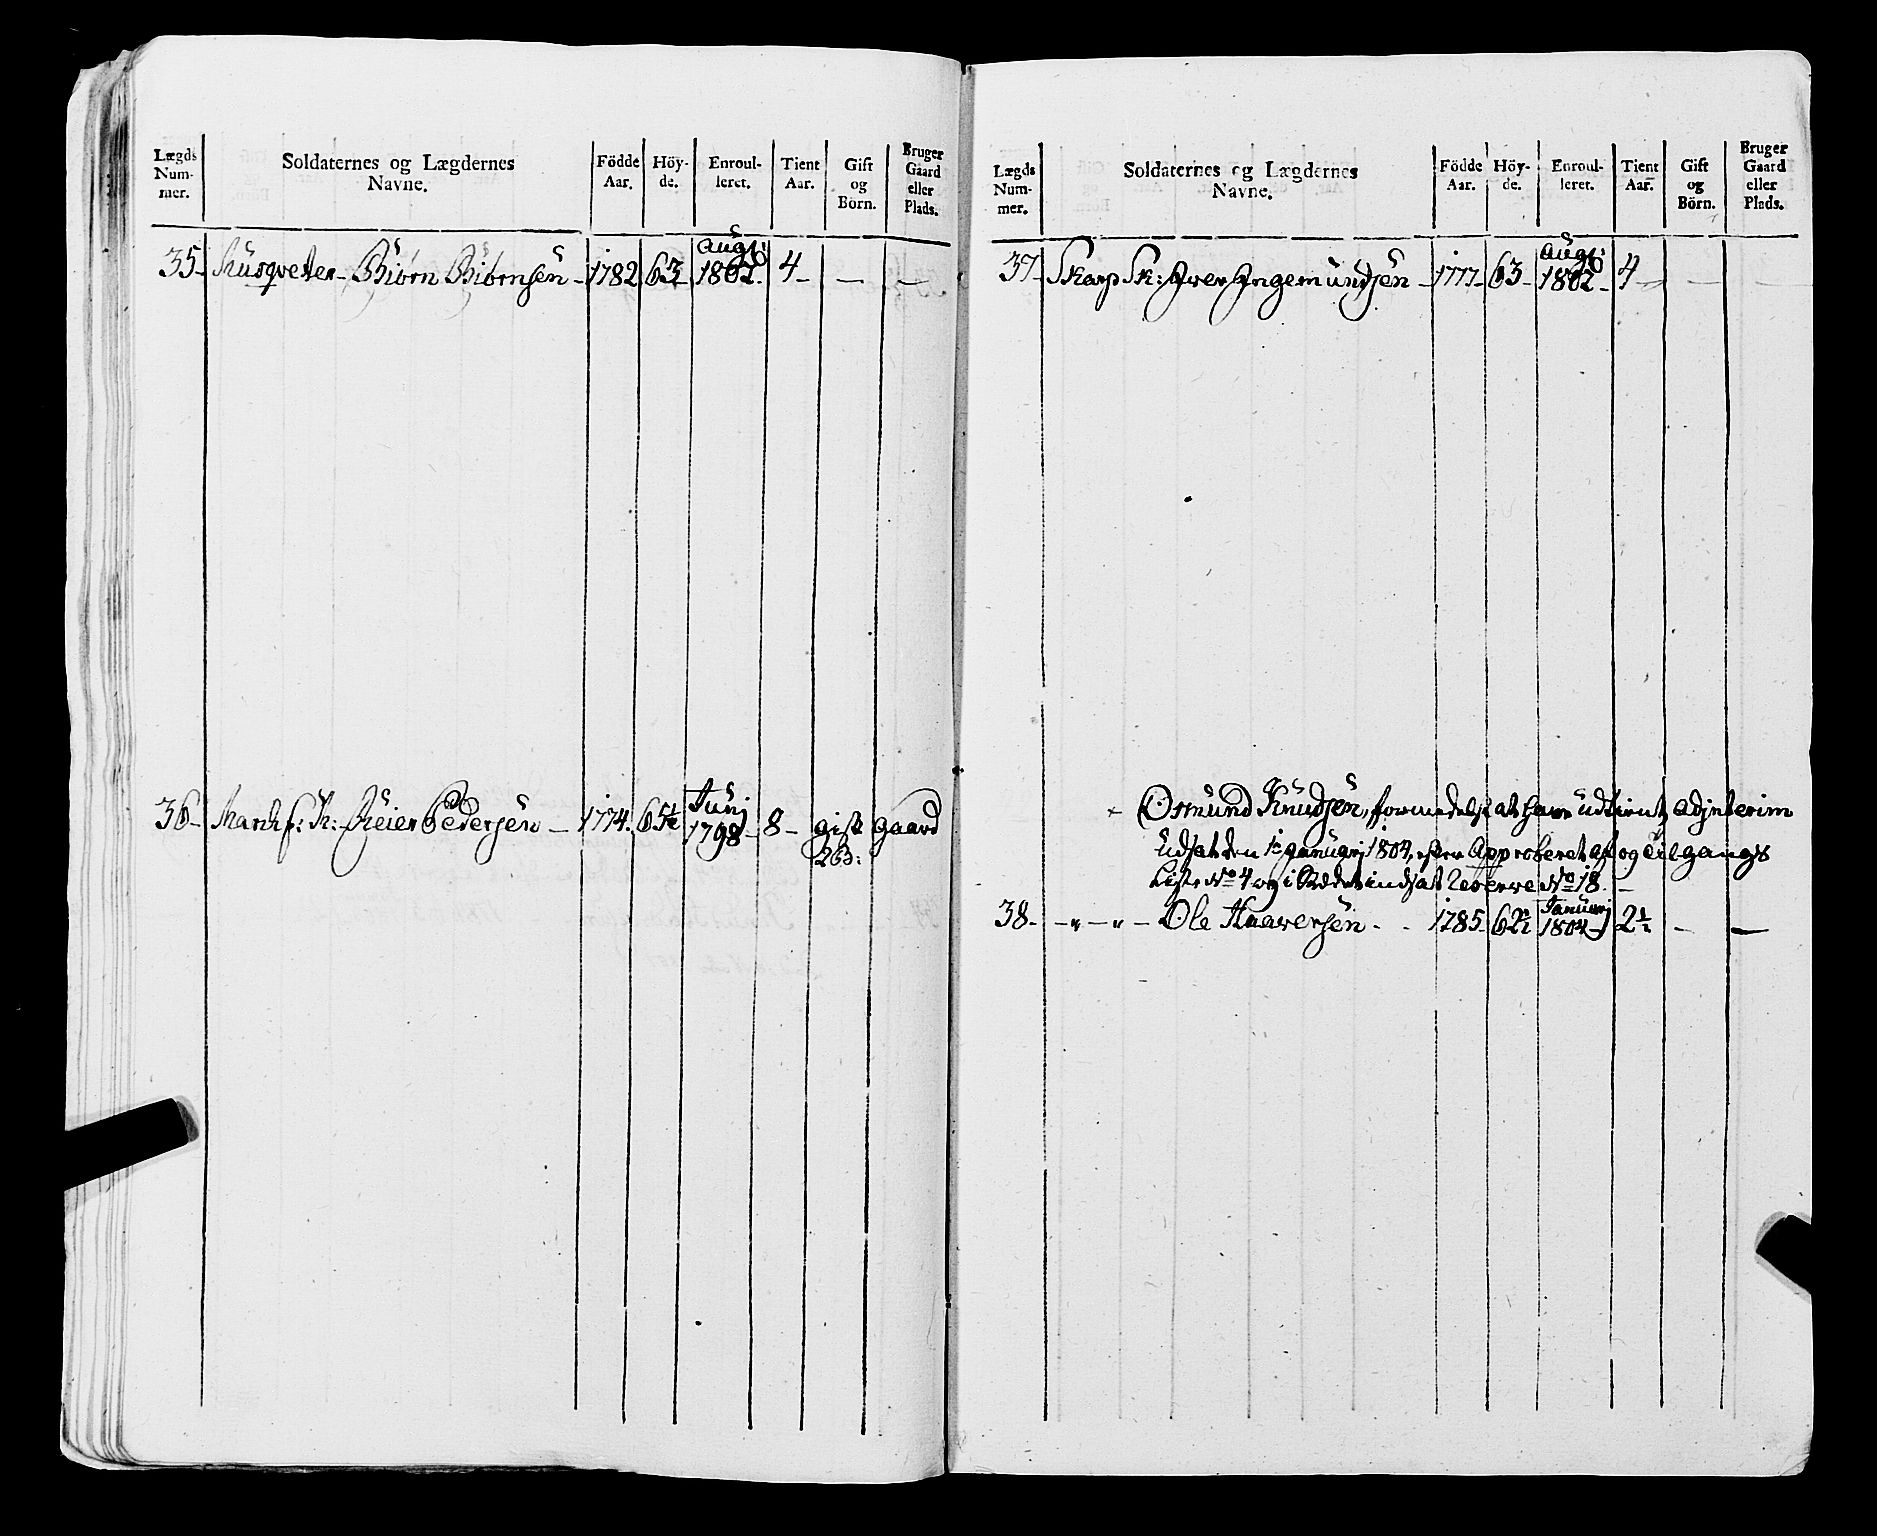 Lægds Num- mer.
Soldaternes og Lægdernes Navne.
Födde Aar.
Höy- de.
Enroul- leret.
Tient Aar.
Gift og Börn.
Bruger Gaard eller Plads.
Augt:
35- Musqveter- Biørn Biørnsen- 1782 63 1802. 4- — —
Junj
36- Reier Pedersen- 1774. 65½ 1798- 8- gift gaard
2 b:
Lægds Num- mer.
Soldaternes og Lægdernes Navne.
Födde Aar.
Höy- de.
Enroul- leret.
Tient Aar.
Gift og Börn.
Bruger Gaard eller Plads.
Augt:
37- Skarp Sk: Iver Ingemundsen- 1777- 63- 1802- 4- — —
Osmund Knudsen, formedelst at have udtient, adjnterim
Udsat den 1te Januarj 1804, efter Approberet af og tilgangs
Liste No 4 og i stædet indsat Reserve No 18. —
Januarj
38- -"-"- Ole Haaversen - - 1785 62½ 1804- 2½ — —